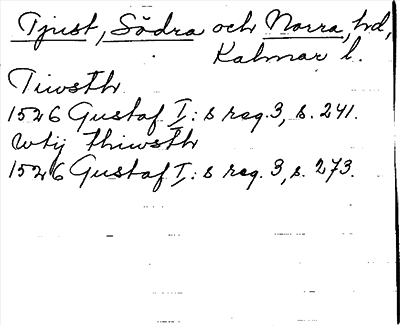 Tjust, Södra och Norra, hd,
Kalmar l.
Tiwsth
1526 Gustaf I:s reg. 3, s. 241.
wtij Thiwsth
1526 Gustaf I:s reg. 3, s. 273.